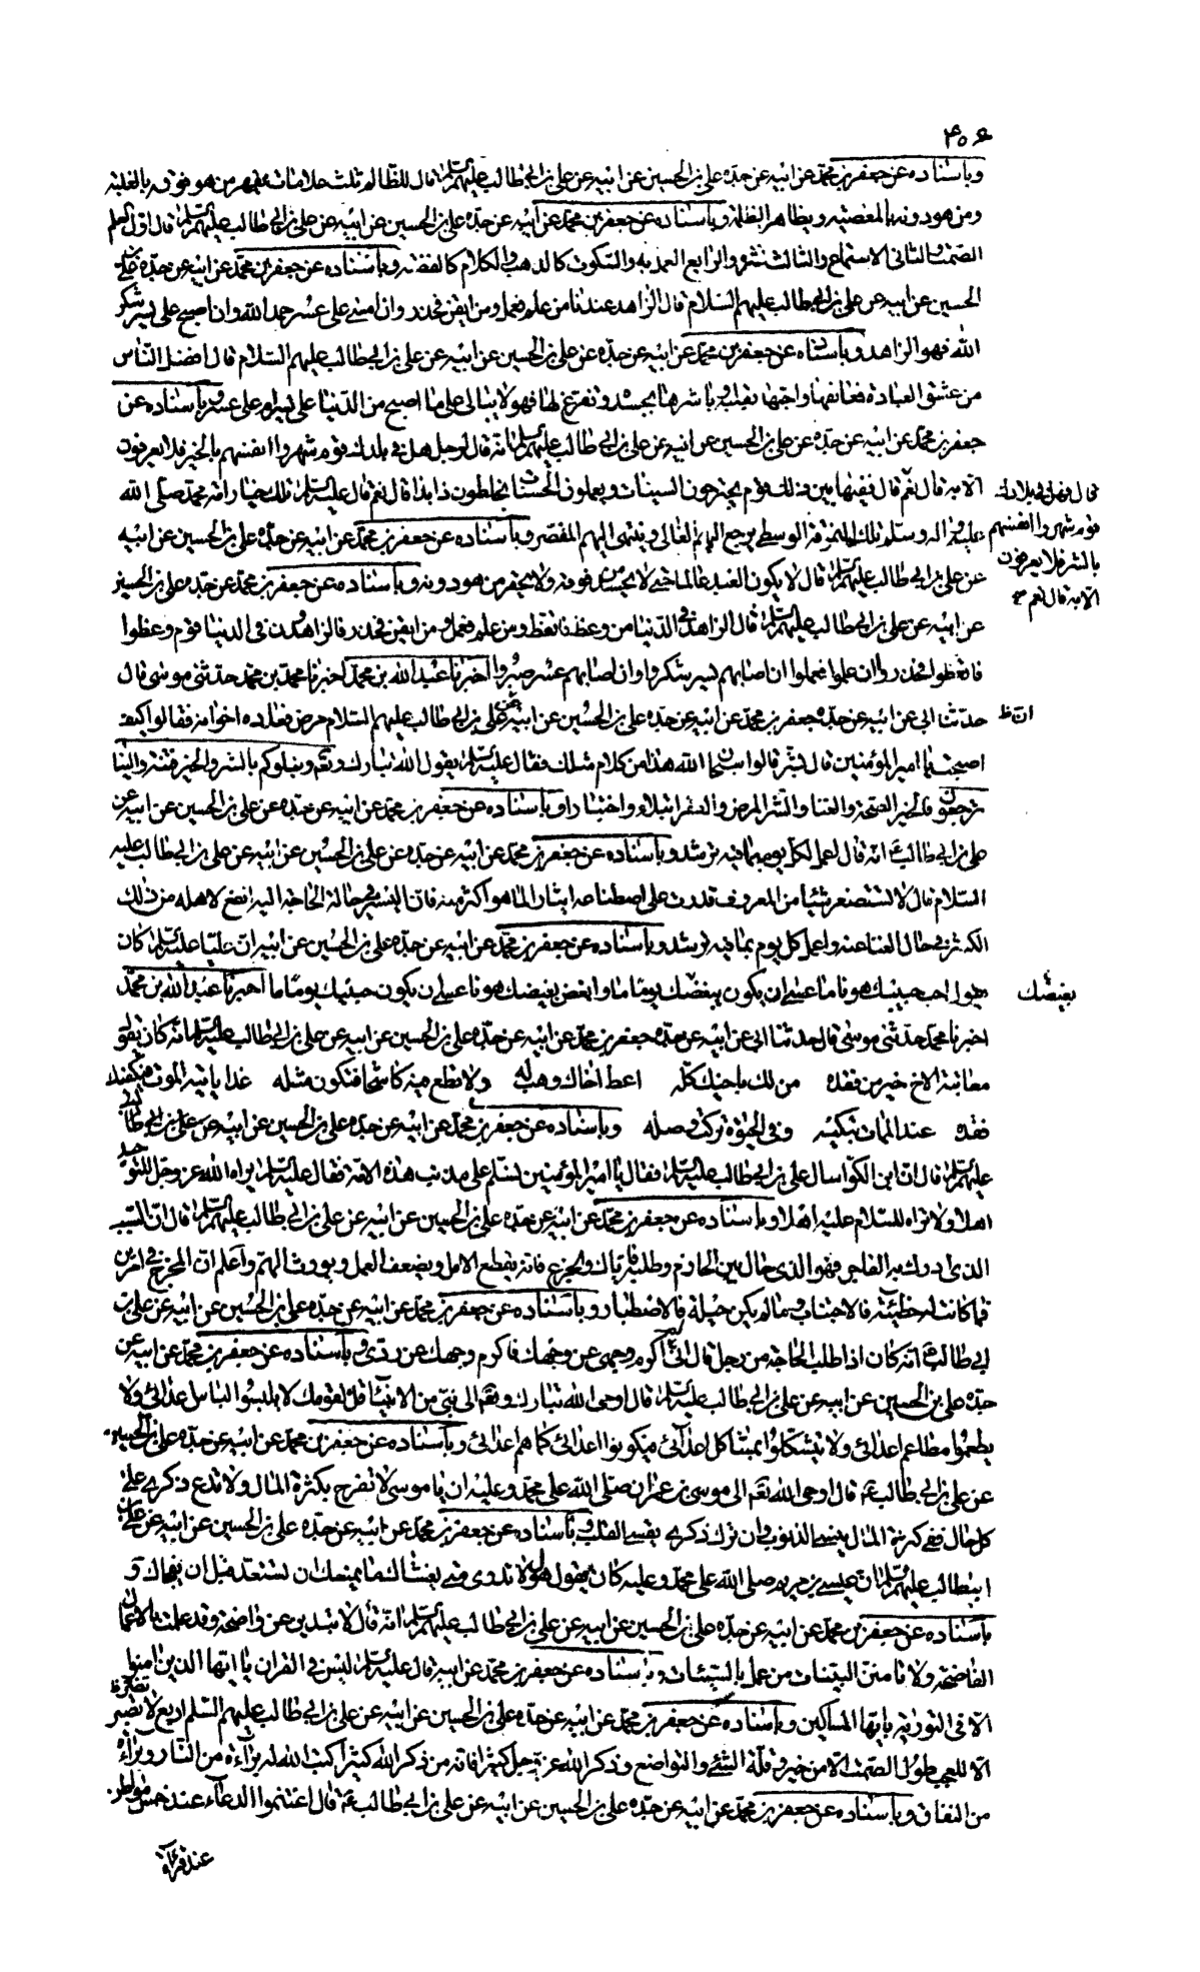 ۴۰۶
وباسناده عن جعفر بن محمد عن ابيه عن جده علي بن الحسين عن ابيه عن علي بن ابي طالب عليهم السلام قال للظالم ثلث علامات يقهر من هو فوقه بالغلبة
ومن هو دونه بالمعصيه ويظاهر الظلمة وباسناده عن جعفر بن محمد عن ابيه عن جده علي بن الحسين عن ابيه عن علي بن ابي طالب عليهم السلام قال اول العلم
الصمت الثاني الاستماع والثالث نشره والرابع العمل به والسكوت كالذهب والكلام كالفضة وباسناده عن جعفر بن محمد عن ابيه عن جده علي بن
الحسين عن ابيه عن علي بن ابي طالب عليهم السلام قال الزاهد عندنا من علم فعمل ومن ايقن فحذر وان امسى على عسر حمد الله وان اصبح على يسر شكر
الله فهو الزاهد وباسناده عن جعفر بن محمد عن ابيه عن جده عن علي بن الحسين عن ابيه عن علي بن ابي طالب عليهم السلام قال افضل الناس
من عشق العبادة فعانقها واحبها بقلبه وباشرها بجسده وتفرغ لها فهو لا يبالي على ما اصبح من الدنيا على يسر ام على عسر وباسناده عن
جعفر بن محمد عن ابيه عن جده عن علي بن الحسين عن ابيه عن علي بن ابي طالب عليهم السلام انه قال لرجل هل في بلدك قوم شهروا انفسهم بالخير فلا يعرفون
الا به قال نعم قال ففيها بين ذلك قوم يجترحون السيئات ويعملون الحسنات يخلطون ذا بذا قال نعم قال عليه السلام تلك خيار امة محمد صلى الله
قال فهل في بلادك
قوم شهروا انفسهم
بالشر فلا يعرفون
الا به قال نعم صح
عليه واله وسلم تلك النمرقة الوسطى يرجع اليهم الغالي وينتهي اليهم المقصر وباسناده عن جعفر بن محمد عن ابيه عن جده علي بن الحسين عن ابيه
عن علي بن ابي طالب عليهم السلام قال لا يكون العبد عالما حتى لا يحسد من فوقه ولا يحقر من هو دونه وباسناده عن جعفر بن محمد عن جده علي بن الحسين
عن ابيه عن علي بن ابي طالب عليهم السلام قال الزاهد في الدنيا من وعظ فاتعظ ومن علم فعمل ومن ايقن فحذر فالزاهدون في الدنيا قوم وعظوا
فاتعظوا فحذروا وان علموا فعملوا ان اصابهم يسر شكروا وان اصابهم عسر صبروا اخبرنا عبد الله بن محمد اخبرنا محمد بن محمد حدثني موسى قال
حدثنا ابي عن ابيه عن جده جعفر بن محمد عن ابيه عن جده علي بن الحسين عن ابيه عن علي بن ابي طالب عليهم السلام مرض فعاده اخوانه فقالوا كيف
اصبحت يا امير المؤمنين قال بشر قالوا سبحان الله هذا من كلام مثلك فقال عليه السلام يقول الله تبارك وتعالى ونبلوكم بالشر والخير فتنة والينا
ترجعون فالخير الصحة والغنا والشر المرض والفقر ابتلاء واختبارا وباسناده عن جعفر بن محمد عن ابيه عن جده عن علي بن الحسين عن ابيه عن
علي بن ابي طالب انه قال اعمل لكل يوم بما فيه ترشد وباسناده عن جعفر بن محمد عن ابيه عن جده عن علي بن الحسين عن ابيه عن علي بن ابي طالب عليه
السلام قال لا تستصغر شيئا من المعروف قدرت على اصطناعه ايثار لما هو اكثر منه فان اليسير في حالة الحاجة اليه انفع لاهله من ذلك
الكثير في حال الغنا عنه واعمل كل يوم بما فيه ترشد وباسناده عن جعفر بن محمد عن ابيه عن جده علي بن الحسين عن ابيه ان عليا عليه السلام كان
يقول احب حبيبك هونا ما عسى ان يكون بغيضك يوما ما وابغض بغيضك هونا عسى ان يكون حبيبك يوما ما اخبرنا عبد الله بن محمد
بغيضك
اخبرنا محمد حدثني موسى قال حدثنا ابي عن ابيه عن جده جعفر بن محمد عن ابيه عن جده علي بن الحسين عن ابيه عن علي بن ابي طالب عليه السلام انه كان يقول
معاتبة الاخ خير من فقده من لك باخيك كله اعط اخاك وهب له ولا تطع فيه كاشحا فتكون مثله غدا ياتيه الموت فيكفيك
فقده عند الممات تبكيه وفي الحيوة تركت وصله وباسناده عن جعفر بن محمد عن ابيه عن جده علي بن الحسين عن ابيه عن علي بن ابي طالب
عليهم السلام قال ان ابن الكوا سال علي بن ابي طالب عليه السلام فقال يا امير المؤمنين تسلم على مذنب هذه الامة فقال عليه السلام يراه الله عز وجل للتوحيد
اهلا ولا تراه للسلام عليه اهلا وباسناده عن جعفر بن محمد عن ابيه عن جده علي بن الحسين عن ابيه عن علي بن ابي طالب عليهم السلام قال ان السبب
الذي ادرك به العاجز فهو الذي حال بين الحازم وطلبته فاياك والجزع فانه يقطع الامل ويضعف العمل ويورث الهم واعلم ان المخرج في امرين
فما كانت له حيلة فالاحتيال وما لم يكن حيلة فالاصطبار وباسناده عن جعفر بن محمد عن ابيه عن جده علي بن الحسين عن ابيه عن علي بن
ابي طالب انه كان اذا طلب الحاجة من رجل قال اني اكرم وجهي عن وجهك فاكرم وجهك عن ردي وباسناده عن جعفر بن محمد عن ابيه عن
جده علي بن الحسين عن ابيه عن علي بن ابي طالب عليه السلام قال اوحى الله تبارك وتعالى الى نبي من الانبيآء قل لقومك لا يلبسوا لباس اعدائي ولا
يطعموا مطاعم اعدائي ولا يتشكلوا بمشاكل اعدآئي فيكونوا اعدائي كما هم اعدائي وباسناده عن جعفر بن محمد عن ابيه عن جده علي بن الحسين
عن علي بن ابي طالب قال اوحى الله تعالى الى موسى بن عمران صلى الله على محمد وعليه ان يا موسى لا تفرح بكثرة المال ولا تدع ذكري على
كل حال ففي كثرة المال ينسى الذنوب وان ترك ذكري يقسي القلب وباسناده عن جعفر بن محمد عن ابيه عن جده علي بن الحسين عن ابيه عن علي بن
ابيطالب عليهم السلام ان عيسى بن مريم صلى الله على محمد وعليه كان يقول هول لا تدري متى يغشاك ما يمنعك ان تستعد قبل ان يفجاك و
باسناده عن جعفر بن محمد عن ابيه عن جده علي بن الحسين عن ابيه عن علي بن ابي طالب عليهم السلام انه قال لا تبدين عن واضحة وقد عملت بالاعمال
الفاضحة ولا تامنن البيات من عمل بالسيئات وباسناده عن جعفر بن محمد عن ابيه قال عليه السلام ليس في القران يا ايها الذين امنوا
الا في التورية يا ايها المساكين وباسناده عن جعفر بن محمد عن ابيه عن جده علي بن الحسين عن ابيه عن علي بن ابي طالب عليهم السلام اربع لا تصير
الا للعجب طول الصمت الا من خير وقلة الشئ والتواضع وذكر الله عز وجل كثيرا فانه من ذكر الله كثيرا كتب الله له براءة من النار وبراءة
من النفاق وباسناده عن جعفر بن محمد عن ابيه عن جده علي بن الحسين عن ابيه عن علي بن ابي طالب قال اغتنموا الدعاء عند خمس مواطن
عند قرائة